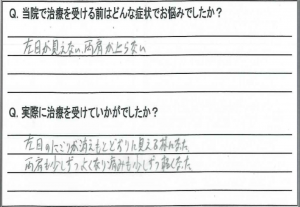 Q. 当院で治療を受ける前はどんな症状でお悩みでしたか?
左目が見えない、両肩が上らない
Q. 実際に治療を受けていかがでしたか?
左目のにごりが消えもとどおりに見える様になった
両肩も少しずつよくなり痛みも少しずつ軽くなった